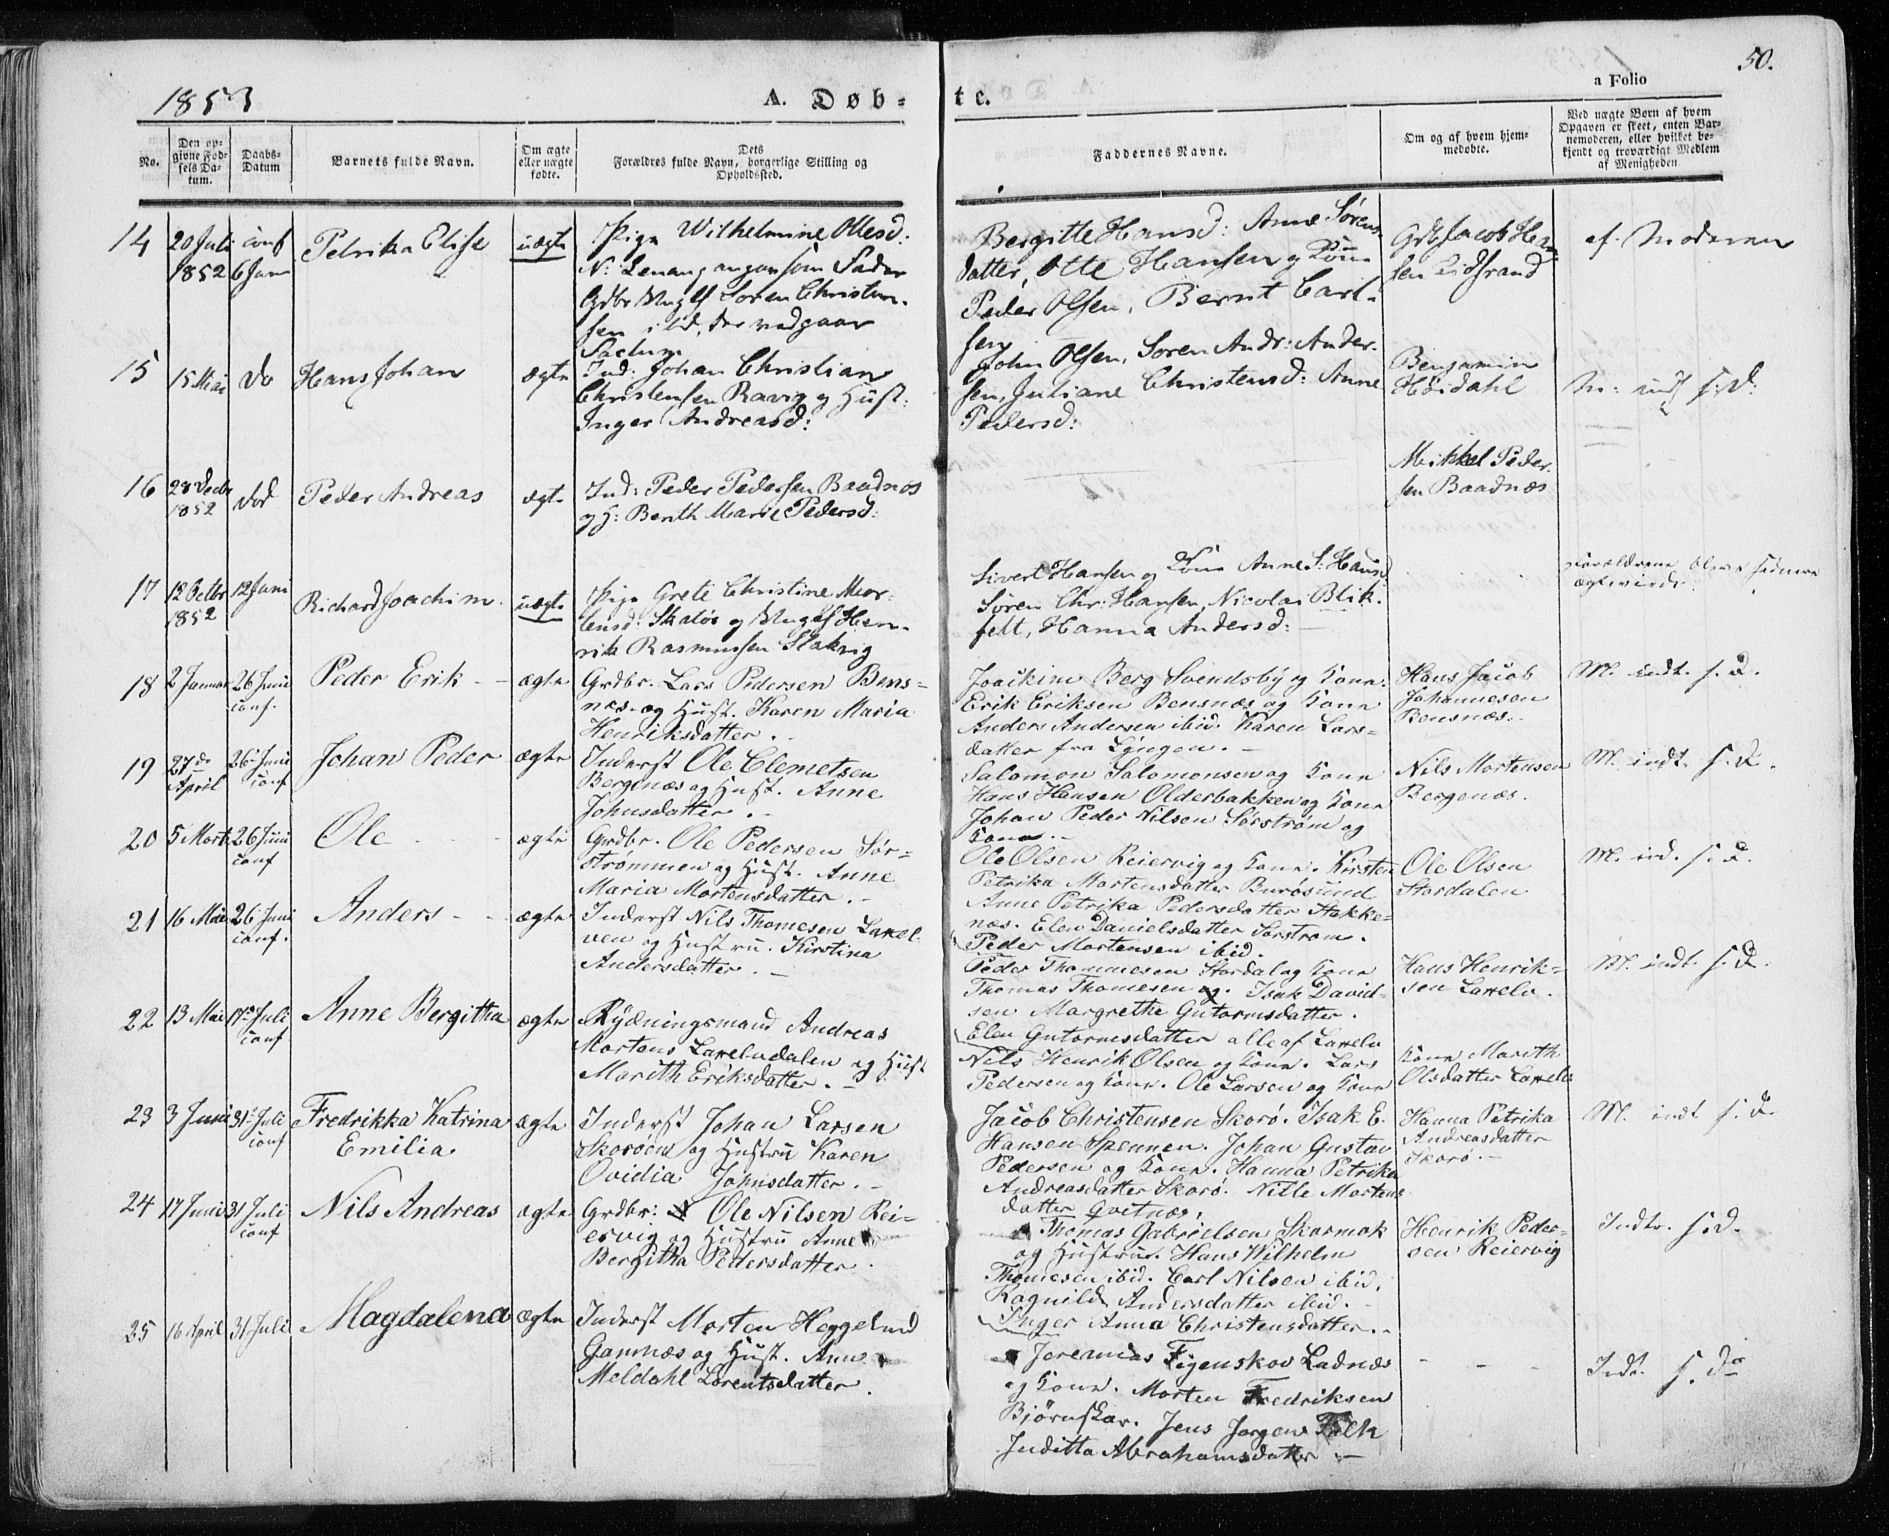 1853
A. Døb-
te.
a Folio
50.
No.
Den op-
givne Fød-
sels Da-
tum.
Daabs-
Datum
Barnets fulde Navn.
Om ægte
eller uægte
fødte.
Dets
Forældres fulde Navn, borgerlige Stilling og
Opholdssted.
Faddernes Navne.
Om og af hvem hjem-
medøbte.
Ved uægte Børn af hvem
Opgaven er skeet, enten Bar-
nemoderen, eller hvilket be-
kjendt og troværdigt Medlem
af Menigheden
14
20 Juli
1852
conf
6 Juni
Petrika Elise
uægte
Pige Wilhelmine Olesd:
N: Lenang angav som Fader
Grdbr Ungkl Soren Christen-
sen ibid, der vedgaar
Factum
Bergitte Hansd: Anne Sørens
datter, Otte Hansen og Kone
Peder Olsen, Bernt Carl-
sen
Grdb Jacob Han
sen
af Moderen
15
15 Mai
do
Hans Johan
ægte
Ind: Johan Christian
Christensen Ravig og Hust:
Inger Andreasd:
John Olsen, Soren Andr: Ander-
sen, Juliane Christensd: Anne
Pedersd:
Benjamin
Høidahl
M: indf s: d.
16
28 Decbr
1852
død
Peder Andreas
ægte
Ind: Peder Pedersen Baadnæs
og H: Berith Marie Pedersd:
Mikkel Peder
sen Baadnæs
17
12 Octbr
1852
12 Juni
Richard Joachim
uægte
Pige Grete Christine Mor-
tensd: Skalø og Ungkl Hen-
rik Rasmussen
Sivert Hansen og Kone Anne S: Hansd
Søren Chr: Hansen, Nicolai Blik-
felt, Hanna Andersd:
Forældrene bleve sidnere
18
2 Januar
26 Juni
conf.
Peder Erik
ægte
Grdbr. Lars Pedersen Bens-
næs og Hust. Karen Maria
Henriksdatter.
Joackim Berg Svendsby og Kone.
Erik Eriksen Bensnæs og Kone
Anders Andersen ibid. Karen Lars-
datter fra Lyngen.
Hans Jacob
Johannesen
Bensnæs.
M. indt. s. D.
19
27de
April
26 Juni
conf
Johan Peder
ægte
Inderst Ole Clemetsen
Bergenæs og Hust. Anne
Johnsdatter.
Salamon Salomonsen og Kone
Hans Hansen Olderbakken og Kone
Johan Peder Nilsen Sørstrøm og
Kone.
Nils Mortensen
Bergenæs.
M. indt. s. D.
20
5 Marts
26 Juni
conf
Ole
ægte
Grdbr. Ole Pedersen Sør-
strømmen og Hust. Anne
Maria Mortensdatter.
Ole Olsen Reiervig og Kone. Kirsten
Petrika Mortensdatter Burøsund
Anne Petrika Pedersdatter Stakke-
næs. Elen Danielsdatter Sørstrøm.
Peder Mortensen ibid.
Ole Olsen
Stordalen
M. ind. s. D.
21
16 Mai
26 Juni
conf.
Anders
ægte
Inderst Nils Thomesen Lakel-
ven og Hustru. Kirstina
Andersdatter.
Peder Thommesen Stordal og Kone
Thomas Thomesen og. Isak David-
sen Margrethe Gutormsdatter.
Elen Gutormsdatter alle af Lakelv
Hans Henrik-
sen Lakelv.
M. indt. s. D.
22
13 Mai
17de Juli
conf
Anne Bergitha
ægte
Rydningsmand Andreas
Mortens Lakelvdalen og Hust
Marith Eriksdatter.
Nils Henrik Olsen og Kone. Lars
Pedersen og Kone. Ole Larsen og Kone
Kone Marith
Olsdatter Lakelv
23
3 Juni
31 Juli
conf
Fredrikka Katrina
Emilia
ægte
Inderst Johan Larsen
Skorøen og Hustru Karen
Ovidia Johnsdatter.
Jacob Christensen Skorø. Isak E.
Hansen Spennen. Johan Gustav
Pedersen og Kone. Hanna Petrika
Andreasdatter Skorø. Nille Martens
datter Gvitnæs.
Hanna Petrika
Andreasdatter
Skorø.
M. indt. s. D.
24
17 Juni
31 Juli
conf
Nils Andreas
ægte
Grdbr: Ole Nilsen Rei-
ervig og Hustru Anne
Bergitha Pedersdatter.
Thomas Gabrielsen Skarmok
og Hustrue. Hans Wilhelm
Thomesen ibid. Carl Nilsen ibid.
Ragnild Andersdatter ibid.
Inger Anna Christensdatter.
Henrik Peder-
sen Reiervig
Indtr. s. d.
25
16 April
31 Juli
Magdalena
ægte
Inderst Morten Heggelund
Gamnæs og Hust. Anne
Meldahl Lorentsdatter.
Jeremias Figenskov Ladnæs
og Kone. Morten Fredriksen
Bjørnskar. Jens Jørgen Falk
Juditta Abrahamsdatter
Indt. s. Do